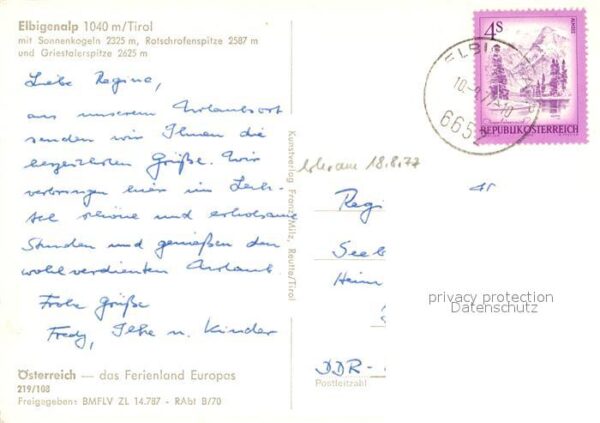 Elbigenalp 1040 m/Tirol
mit Sonnenkogeln 2325 m, Rotschrofenspitze 2587 m
und Griestalerspitze 2625 m
Liebe Regina,
aus unserem Urlaubsort
senden wir Ihnen die
herzlichsten Grüße. Wir
verbringen hier im Lech-
tal schöne und erholsame
Stunden und genießen den
wohlverdienten Urlaub.
Frohe Grüße
Fredy, Ilse u. Kinder
Österreich — das Ferienland Europas
219/108
Freigegeben: BMFLV ZL 14.787 - RAbt B/70
Kunstverlag Franz Milz, Reutte/Tirol
4S
ALMSEE
REPUBLIK ÖSTERREICH
ELBIG
665
am 18.8.77
Regi
Seeb
Heim
DDR-
Postleitzahl
privacy protection
Datenschutz